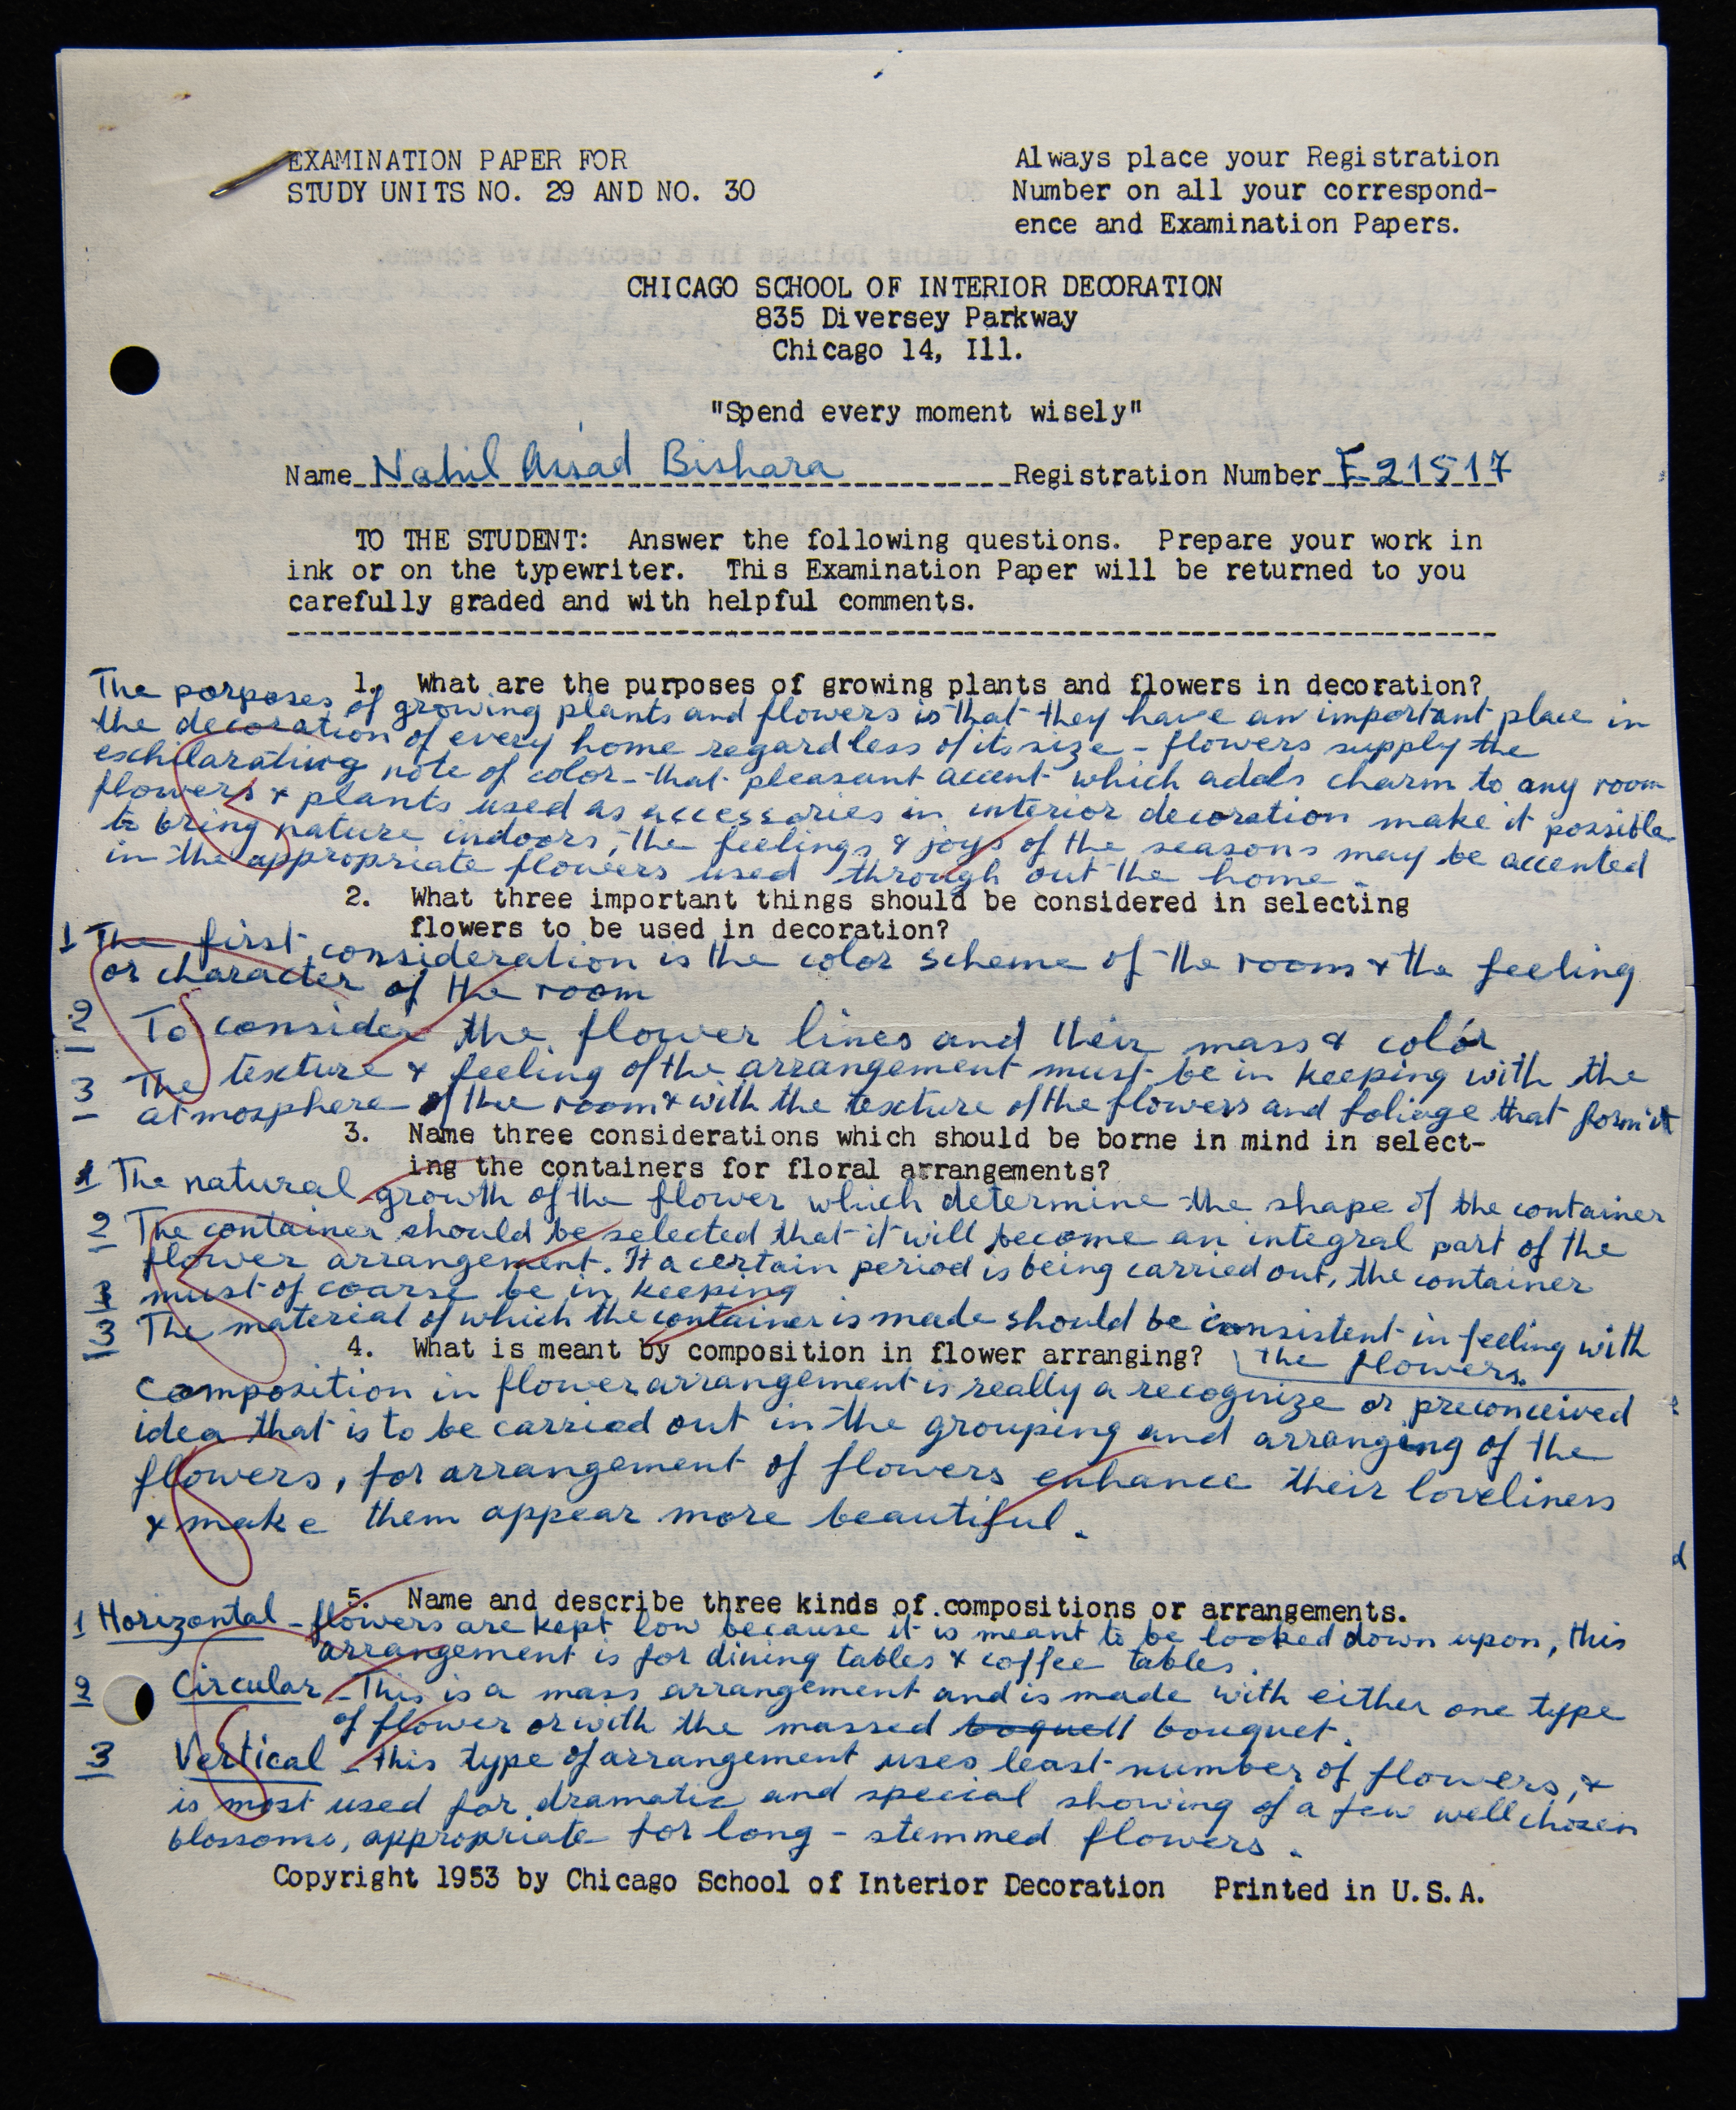 EXAMINATION PAPER FOR
STUDY UNITS NO. 29 AND NO. 30
Always place your Registration
Number on all your correspond-
ence and Examination Papers.
CHICAGO SCHOOL OF INTERIOR DECORATION
835 Diversey Parkway
Chicago 14, Ill.
"Spend every moment wisely"
Name Nahil Assad Bishara Registration Number F-21517
TO THE STUDENT: Answer the following questions. Prepare your work in
ink or on the typewriter. This Examination Paper will be returned to you
carefully graded and with helpful comments.
1. What are the purposes of growing plants and flowers in decoration?
The porposes of growing plants and flowers is that they have an important place in
the decoration of every home regardless of its size - flowers supply the
exchilarating note of color - that pleasant accent which adds charm to any room
flowers & plants used as accessories in interior decoration make it possible
to bring nature indoors, the feelings & joys of the seasons may be accented
in the appropriate flowers used through out the home.
2. What three important things should be considered in selecting
flowers to be used in decoration?
1 The first consideration is the color scheme of the room & the feeling
or character of the room
2 To consider the flower lines and their mass & color
3 The texture & feeling of the arrangement must be in keeping with the
atmosphere of the room & with the texture of the flowers and foliage that form it
3. Name three considerations which should be borne in mind in select-
ing the containers for floral arrangements?
1 The natural growth of the flower which determine the shape of the container
2 The container should be selected that it will become an integral part of the
flower arrangement. If a certain period is being carried out, the container
must of coarse be in keeping
3 The material of which the container is made should be consistent in feeling with
the flowers.
4. What is meant by composition in flower arranging?
Composition in flower arrangement is really a recognize or preconceived
idea that is to be carried out in the grouping and arranging of the
flowers, for arrangement of flowers enhance their loveliness
& make them appear more beautiful.
5. Name and describe three kinds of compositions or arrangements.
1 Horizontal - flowers are kept low because it is meant to be looked down upon, this
arrangement is for dining tables & coffee tables.
2 Circular - This is a mass arrangement and is made with either one type
of flower or with the massed boquett bouquet.
3 Vertical - this type of arrangement uses least number of flowers, &
is most used for dramatic and special showing of a few well chosen
blossoms, appropriate for long - stemmed flowers.
Copyright 1953 by Chicago School of Interior Decoration Printed in U.S.A.